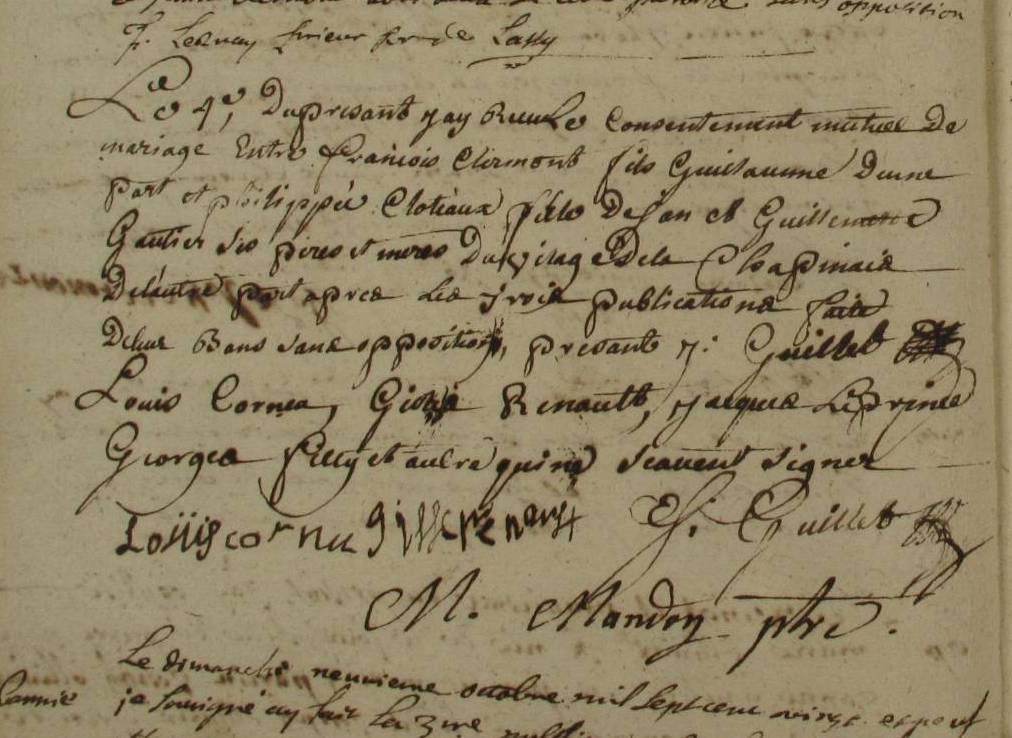 opposition
prieur de Lassy
Le 4e, du presant jay Receu Le Consentement mutuel De
mariage Entre francois Clermont fils Guillaume Dune
part et philippée Clotiaux fille De Jan et Guillemette
Gautier ses peres et meres Du village De la Chapinais
De lautre part apres Les trois publications faite
De leur Bans sans opposition, presant Guillet
Louis Cornu, Renault, jacques Leprince
Georges et autre qui ne scavent signer
Loüis cornu gille renaust Guillet
M. Mandoy ptre.
Le dimanche neuvieme octobre mil sept cent vingt et
je soussigné ay fait La 3me